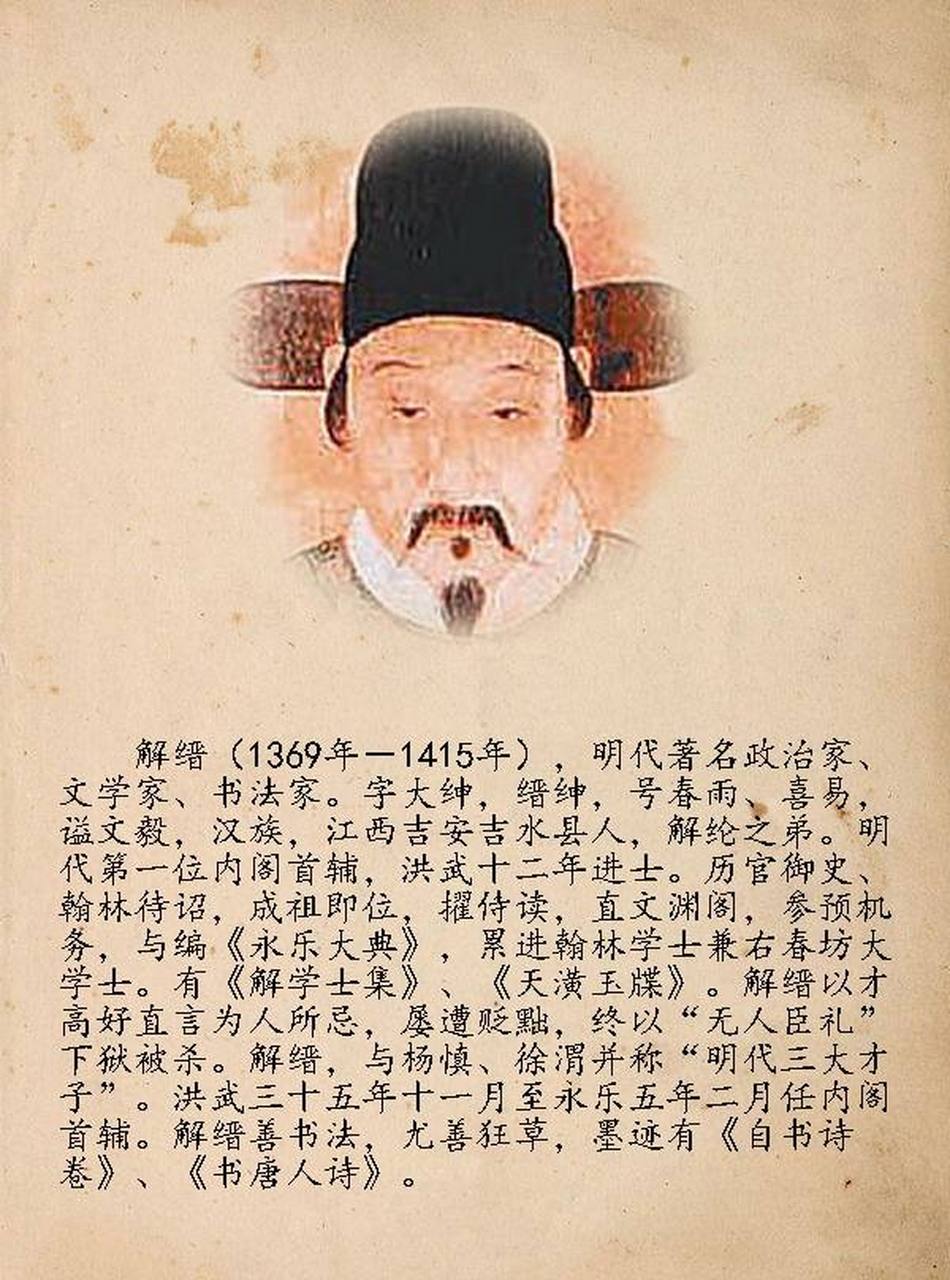 解缙（1369年—1415年），明代著名政治家、
文学家、书法家。字大绅，缙绅，号春雨、喜易，
谥文毅，汉族，江西吉安吉水县人，解纶之弟。明
代第一位内阁首辅，洪武十二年进士。历官御史、
翰林待诏，成祖即位，擢侍读，直文渊阁，参预机
务，与编《永乐大典》，累进翰林学士兼右春坊大
学士。有《解学士集》、《天潢玉牒》。解缙以才
高好直言为人所忌，屡遭贬黜，终以“无人臣礼”
下狱被杀。解缙，与杨慎、徐渭并称“明代三大才
子”。洪武三十五年十一月至永乐五年二月任内阁
首辅。解缙善书法，尤善狂草，墨迹有《自书诗
卷》、《书唐人诗》。